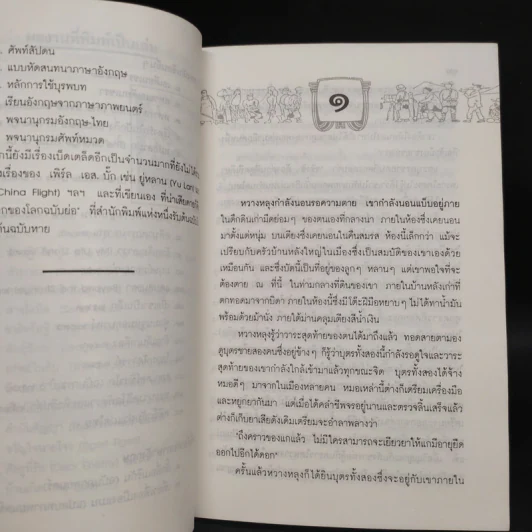 . ศัพท์สัปดน
. แบบหัดสนทนาภาษาอังกฤษ
. หลักการใช้บุรพบท
. เรียนอังกฤษจากภาษาภาพยนตร์
. พจนานุกรมอังกฤษ-ไทย
. พจนานุกรมศัพท์หมวด
กนี้ยังมีเรื่องเบ็ดเตล็ดอีกเป็นจำนวนมากที่ยังไม่ได้
เรื่องของ เพิร์ล เอส. บัก เช่น ยู่หลาน (Yu Lan)
China Flight) ฯลฯ และที่เขียนเอง ที่น่าเสียดาย
กของโลกฉบับย่อ" ที่สำนักพิมพ์แห่งหนึ่งรับต้นฉบับ
ต้นฉบับหาย
๑
หวางหลุงกำลังนอนรอความตาย เขากำลังนอนแบ็บอยู่ภาย
ในตึกดินเก่ามืดย่อมๆ ของตนเองที่กลางนา ภายในห้องซึ่งเคยนอน
มาตั้งแต่หนุ่ม บนเตียงซึ่งเคยนอนในคืนสมรส ห้องนี้เล็กกว่า แม้จะ
เปรียบกับครัวบ้านหลังใหญ่ในเมืองซึ่งเป็นสมบัติของเขาเองด้วย
เหมือนกัน และซึ่งบัดนี้เป็นที่อยู่ของลูกๆ หลานๆ แต่เขาพอใจที่จะ
ต้องตาย ณ ที่นี้ ในท่ามกลางที่ดินของเขา ภายในบ้านหลังเก่าที่
ตกทอดมาจากบิดา ภายในห้องนี้ซึ่งมีโต๊ะฝีมือหยาบๆ ไม่ได้ทาน้ำมัน
พร้อมด้วยม้านั่ง ภายใต้ม่านคลุมเตียงสีน้ำเงิน
หวางหลุงรู้ว่าวาระสุดท้ายของตนได้มาถึงแล้ว ทอดสายตามอง
ดูบุตรชายสองคนซึ่งอยู่ข้างๆ ก็รู้ว่าบุตรทั้งสองนี้กำลังรอดูใจและวาระ
สุดท้ายของเขากำลังใกล้เข้ามาแล้วทุกขณะจิต บุตรทั้งสองได้จ้าง
หมอดีๆ มาจากในเมืองหลายคน หมอเหล่านี้ต่างก็เตรียมเครื่องมือ
และหยูกยากันมา แต่เมื่อได้คลำชีพจรอยู่นานและตรวจลิ้นเสร็จแล้ว
ต่างก็เก็บยาเสียดังเดิมเตรียมจะอำลาพลางว่า
"ถึงคราวของแกแล้ว ไม่มีใครสามารถจะเยียวยาให้แกมีอายุยืด
ออกไปอีกได้ดอก"
ครั้นแล้วหวางหลุงก็ได้ยินบุตรทั้งสองซึ่งจะอยู่กับเขาภายใน